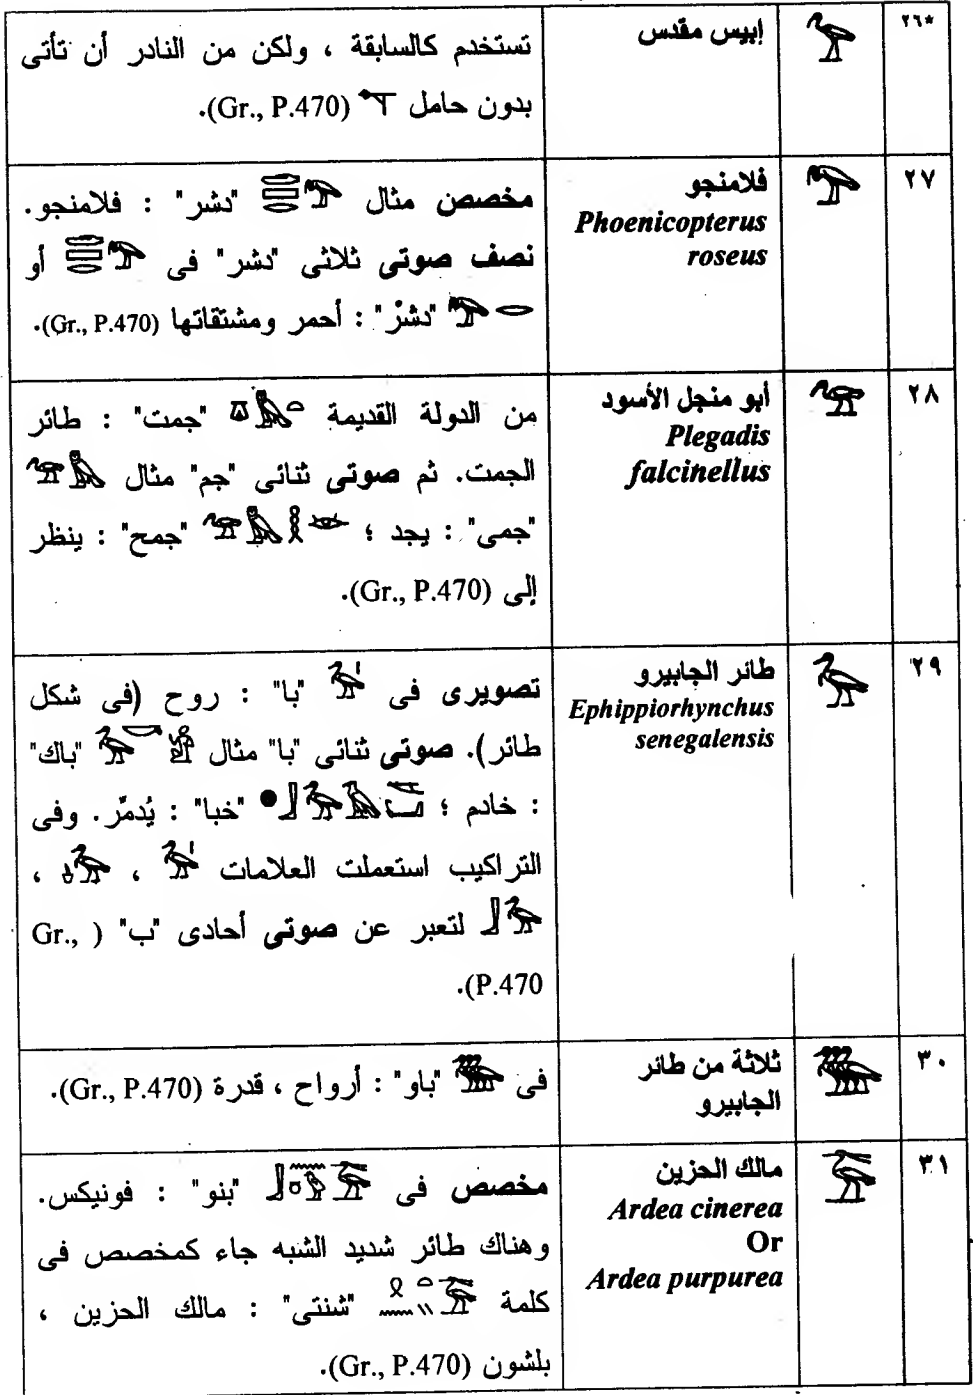 *٢٦
إبيس مقدس
تستخدم كالسابقة ، ولكن من النادر أن تأتى
بدون حامل (Gr., P.470).
٢٧
فلامنجو
Phoenicopterus
roseus
مخصص مثال "دشر" : فلامنجو.
نصف صوتى ثلاثى "دشر" فى أو
"دشرْ" : أحمر ومشتقاتها (Gr., P.470).
٢٨
أبو منجل الأسود
Plegadis
falcinellus
من الدولة القديمة "جمت" : طائر
الجمت. ثم صوتى ثنائى "جم" مثال
"جمى" : يجد ؛ "جمح" : ينظر
إلى (Gr., P.470).
٢٩
طائر الجابيرو
Ephippiorhynchus
senegalensis
تصويرى فى "با" : روح (فى شكل
طائر). صوتى ثنائى "با" مثال "باك"
: خادم ؛ "خبا" : يُدمَّر. وفى
التراكيب استعملت العلامات ، ،
لتعبر عن صوتى أحادى "ب" ( Gr.,
P.470).
٣٠
ثلاثة من طائر
الجابيرو
فى "باو" : أرواح ، قدرة (Gr., P.470).
٣١
مالك الحزين
Ardea cinerea
Or
Ardea purpurea
مخصص فى "بنو" : فونيكس.
وهناك طائر شديد الشبه جاء كمخصص فى
كلمة "شنتى" : مالك الحزين ،
بلشون (Gr., P.470).